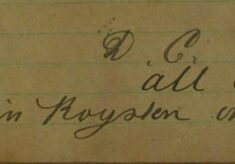 D. C.
all
in Roysten